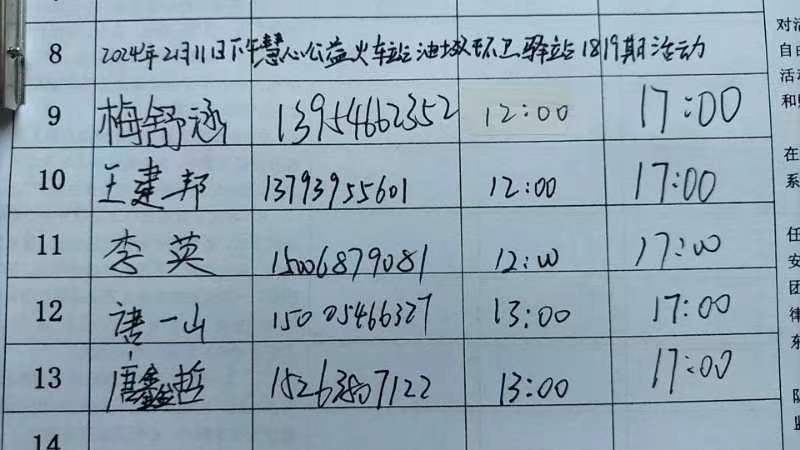 8 2024年2月11日下午慧心公益火车站油城环卫驿站1819期活动
9 梅舒涵 13954662352 12:00 17:00
10 王建邦 13793955601 12:00 17:00
11 李英 15006879081 12:00 17:00
12 唐一山 15005466327 13:00 17:00
13 唐鑫哲 15263807122 13:00 17:00
14
对活
自由
活动
和
在
系
任
安
团
律
东
队
监